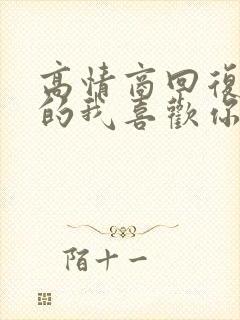 高情商回復
的我喜歡你
陌十一